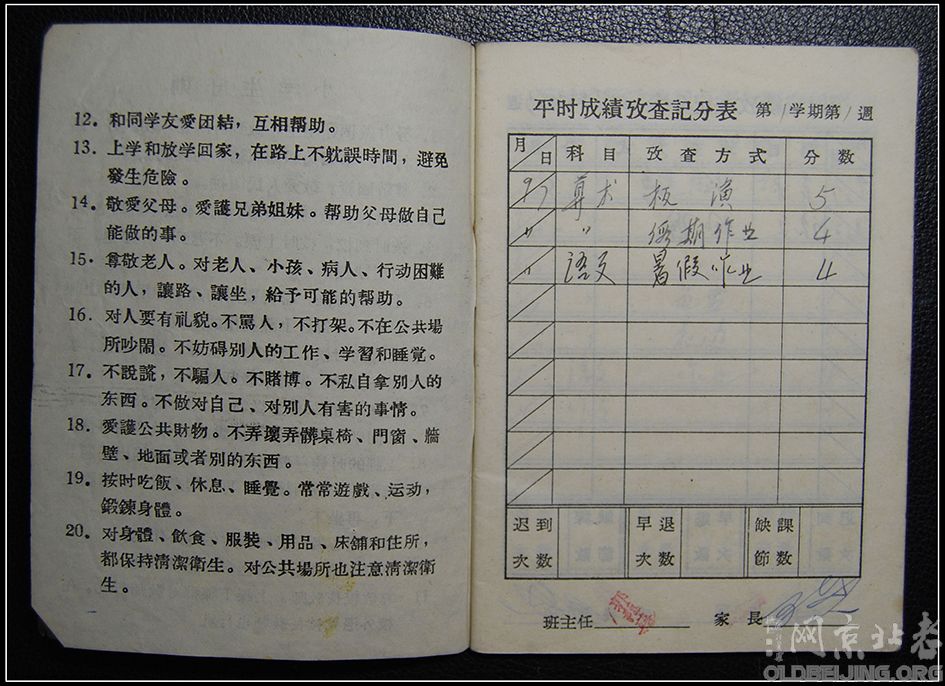 12. 和同学友愛团結，互相帮助。
13. 上学和放学回家，在路上不躭誤時間，避免
發生危險。
14. 敬愛父母。愛護兄弟姐妹。帮助父母做自己
能做的事。
15. 尊敬老人。对老人、小孩、病人、行动困難
的人，讓路、讓坐，給予可能的帮助。
16. 对人要有礼貌。不罵人，不打架。不在公共場
所吵鬧。不妨碍别人的工作、学習和睡覺。
17. 不說謊，不騙人。不賭博。不私自拿别人的
东西。不做对自己、对别人有害的事情。
18. 愛護公共財物。不弄壞弄髒桌椅、門窗、牆
壁、地面或者别的东西。
19. 按时吃飯、休息、睡覺。常常遊戲、运动，
鍛鍊身體。
20. 对身體、飲食、服裝、用品、床舖和住所，
都保持清潔衛生。对公共場所也注意清潔衛
生。
平时成績攷查記分表 第1学期第1週
月日 科目 攷查方式 分数
9/7 算术 板演 5
〃 〃 假期作业 4
〃 語文 暑假作业 4
迟到次数 早退次数 缺課節数
班主任 家長
老北京网
OLDBEIJING.ORG